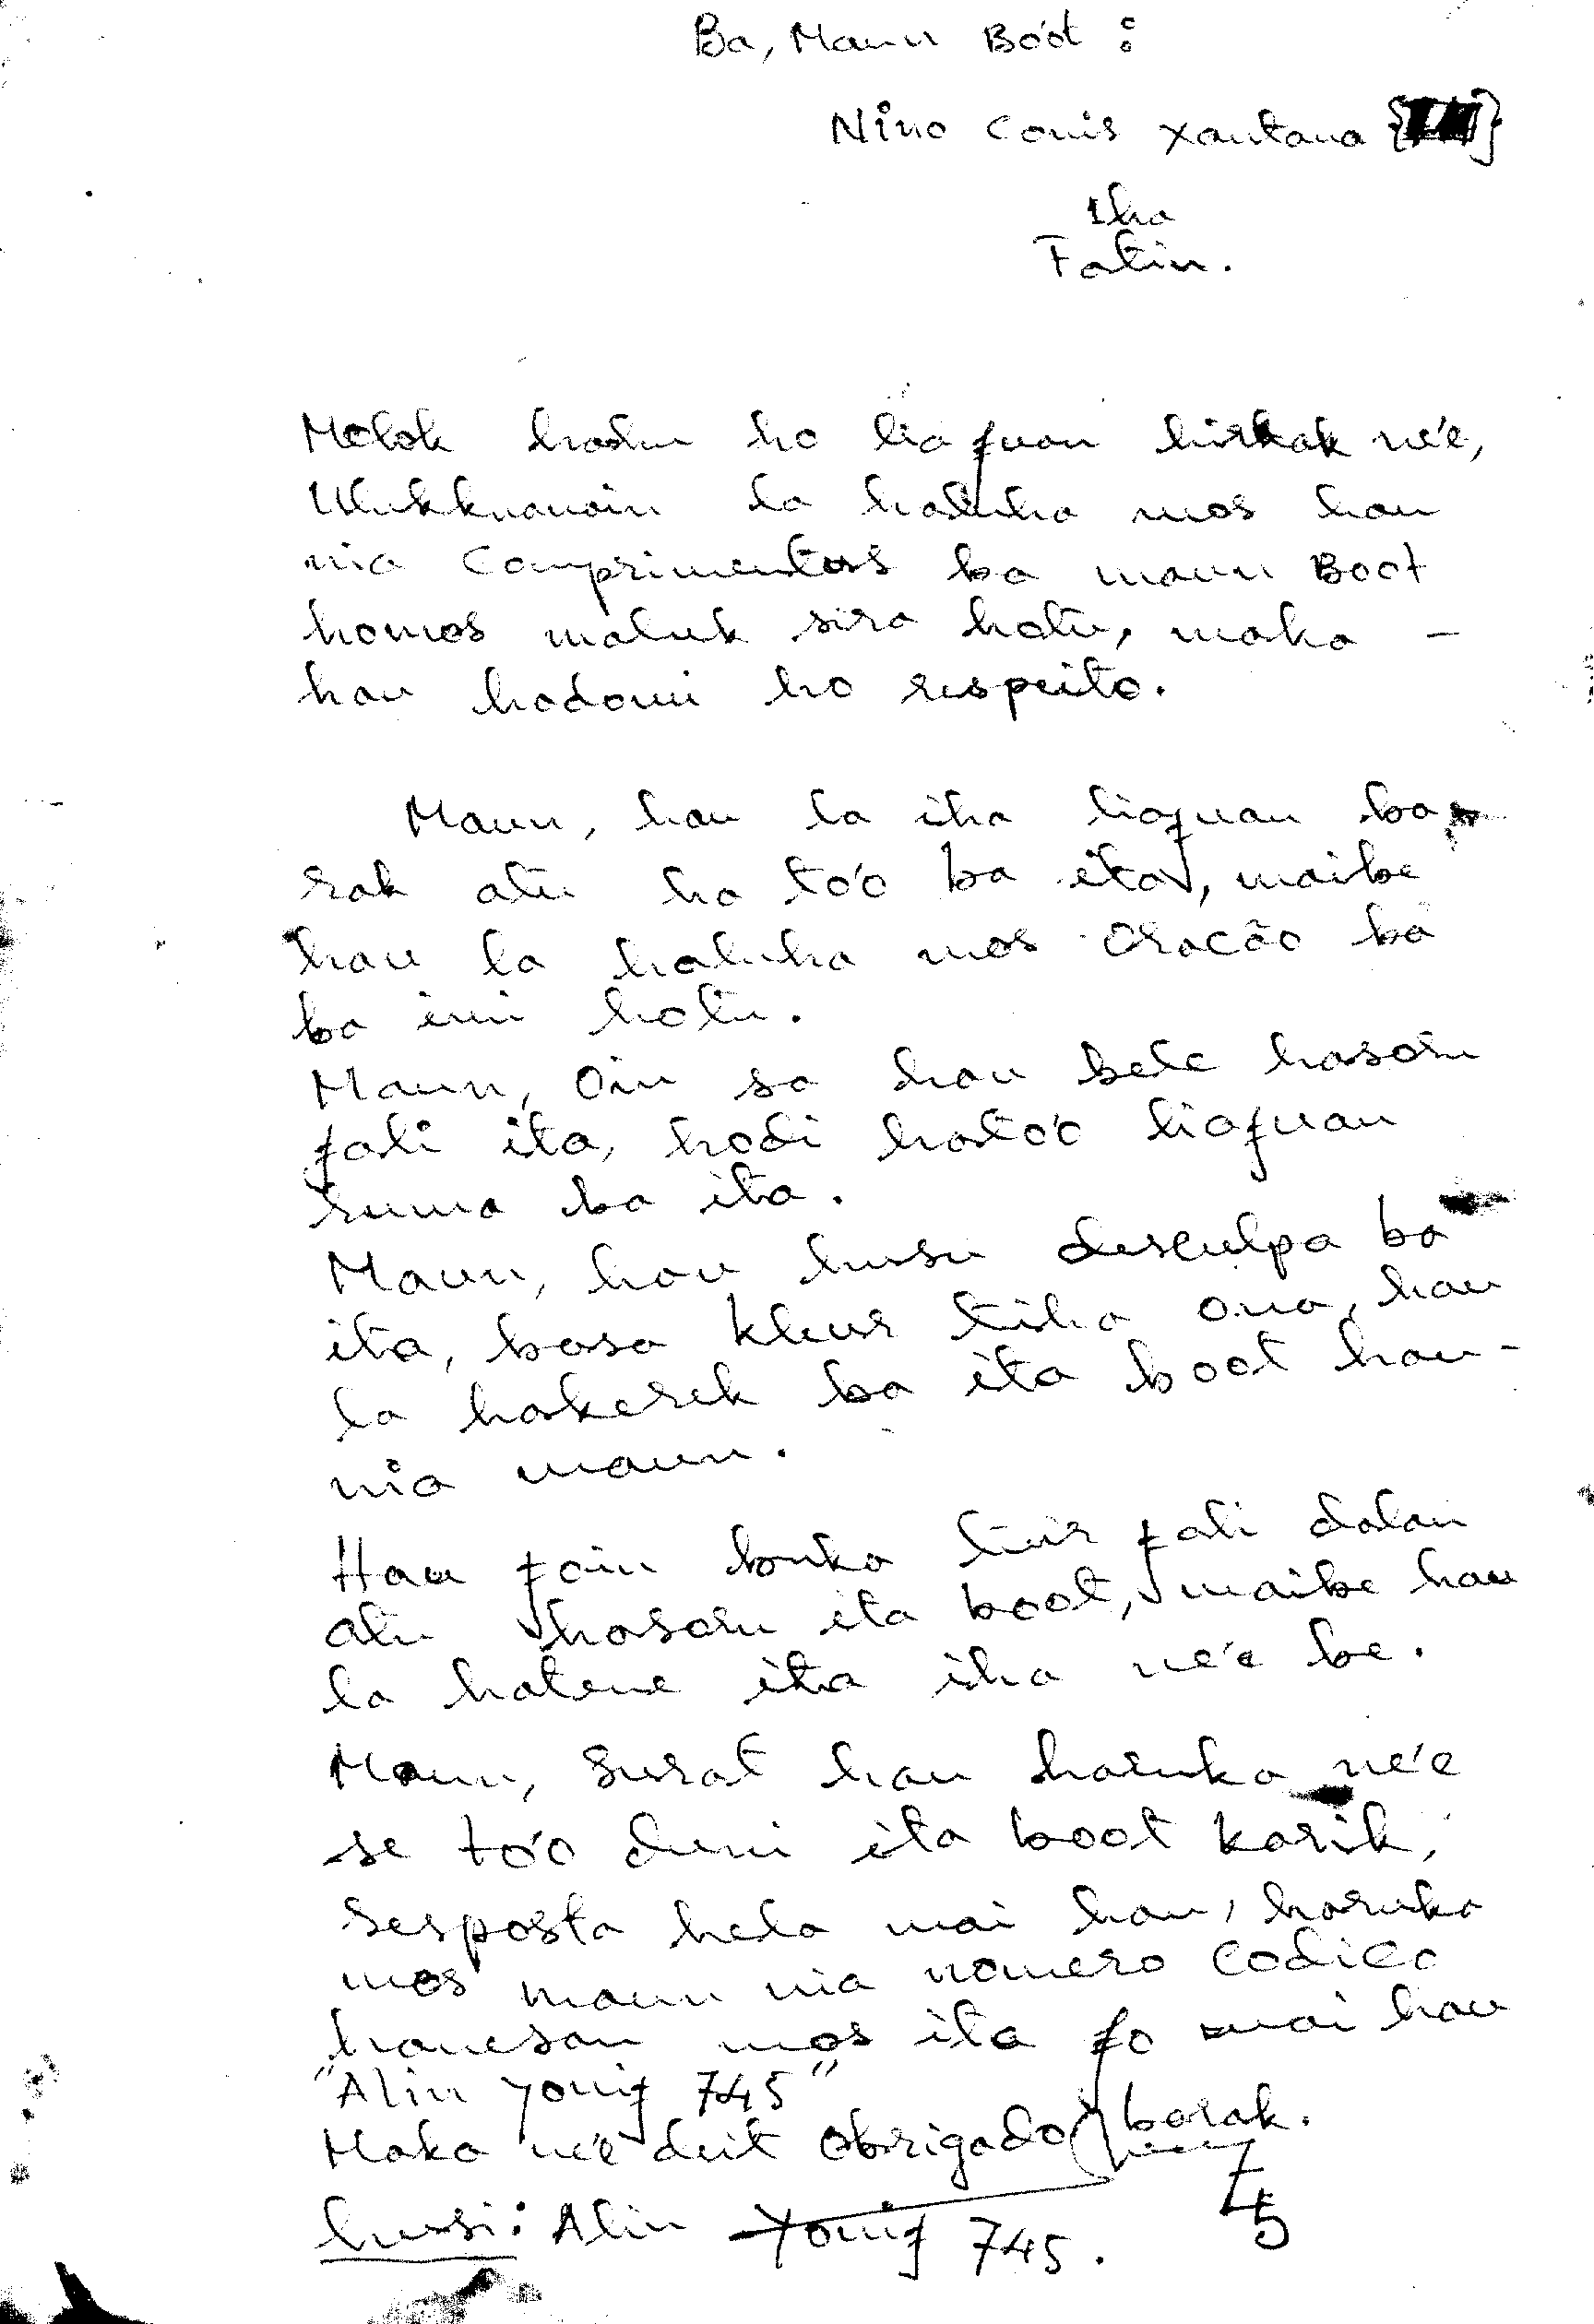 Ba, Maun Bo'ot :
Nino Conis Xantana
Iha
Fatin.
Molok hahu ho lia fuan hirkak ne'e,
Ulukknanain la haluha mos hau
nia Comprimentus ba maun Boot
homos maluk sira hotu, maka -
hau hadomi ho respeito.
Maun, hau la iha liafuan ba
rak atu ha to'o ba ita, maibe
hau la haluha mos oracão ba
ba imi hotu.
Maun, Oin sa hau bele hasoru
fali ita, hodi hato'o liafuan
ruma ba ita.
Maun, hau husu desculpa ba
ita, basa kleur tiha ona, hau
la hakerek ba ita boot hau -
nia maun.
Hau foin buka tuir fali dalan
atu hasoru ita boot, maibe hau
la hatene ita iha ne'e be.
Maun, Surat hau haruka ne'e
se to'o duni ita boot karik,
resposta hela mai hau, haruka
mos maun nia nomero codico
hanesan mos ita fo mai hau
"Alin Yonif 745"
Maka ne'e deit obrigado barak.
husi: Alin Yonif 745.
745